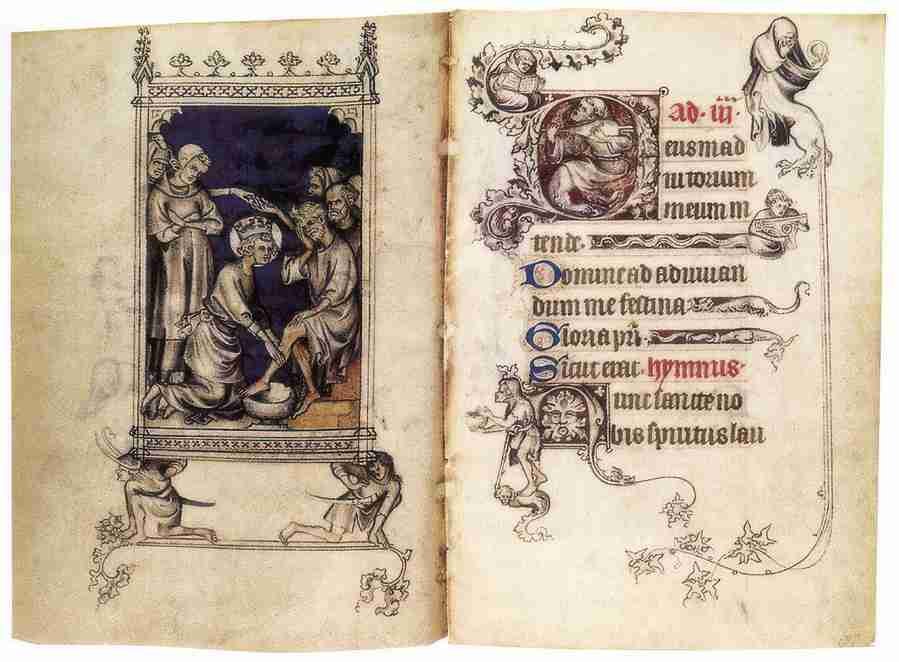 Ad·iii·
eus in ad
iutorium
meum in
tende·
Domine ad adiuuan
dum me festina
Gloria pri·
Sicut erat· hymnus·
unc sancte no
bis spiritus lau